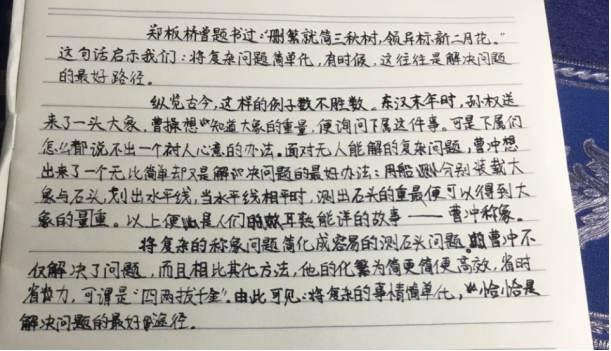 郑板桥曾题书过：“删繁就简三秋树，领异标新二月花。”
这句话启示我们：将复杂问题简单化，有时候，这往往是解决问题
的最好路径。
纵览古今，这样的例子数不胜数。东汉末年时，孙权送
来了一头大象，曹操想知道大象的重量，便询问下属这件事。可是下属们
怎么都说不出一个衬人心意的办法。面对无人能解的复杂问题，曹冲想
出来了一个无比简单却又是解决问题的最好办法：用船分别装载大
象与石头，刻出水平线，当水平线相平时，测出石头的重量便可以得到大
象的重。以上便是人们耳熟能详的故事——曹冲称象。
将复杂的称象问题简化成容易的测石头问题。曹冲不
仅解决了问题，而且相比其他方法，他的化繁为简更简便高效，省时
省力，可谓是“四两拨千金”。由此可见：将复杂的事情简单化，恰恰是
解决问题的最好途径。